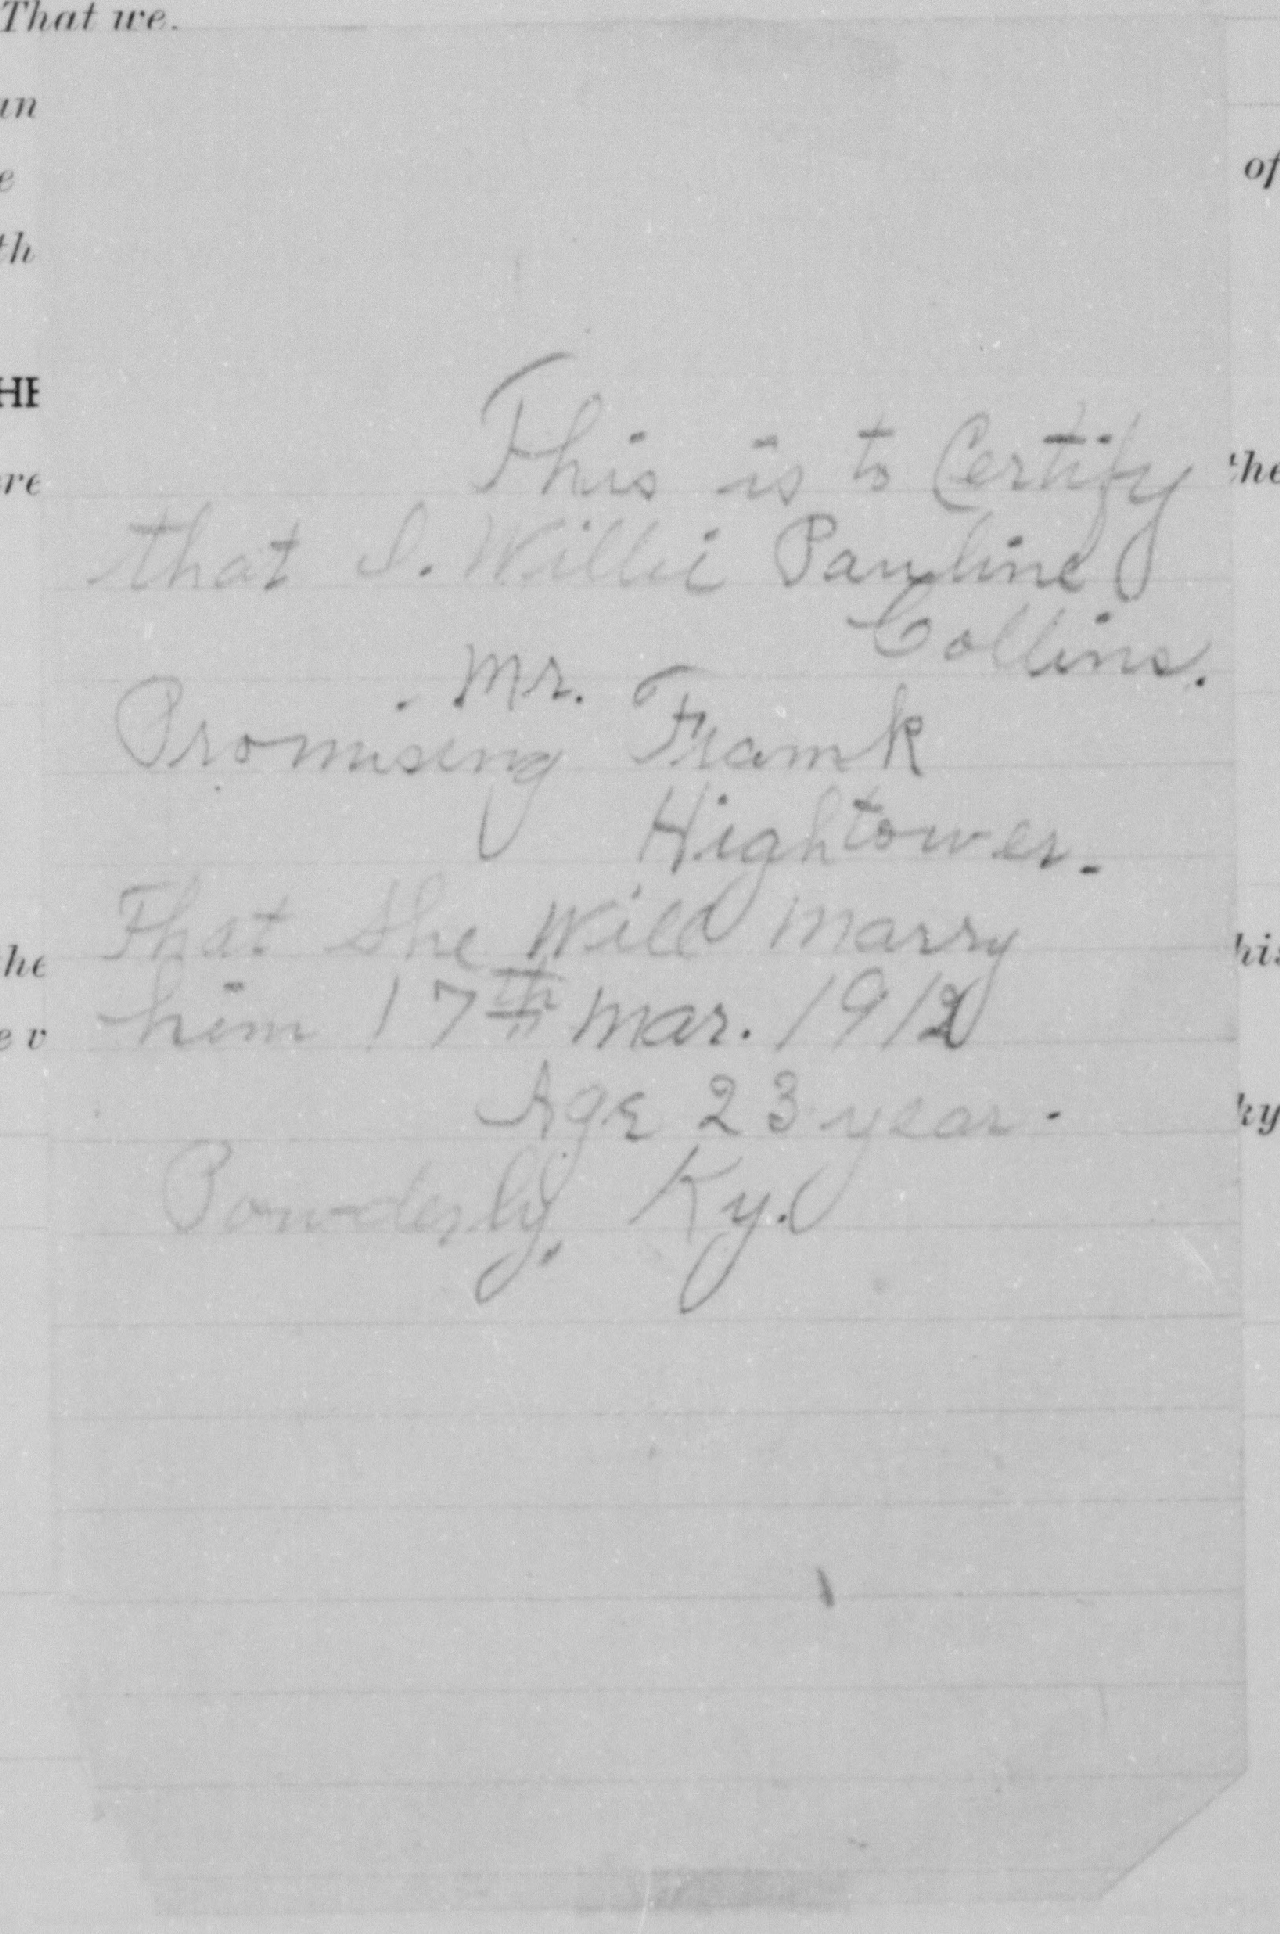 That we.
un
e
of
th
HE
This is to Certify
the
ore
that I. Willie Pauline
Collins.
Mr.
Promising Framk
Hightower.
That She Will Marry
the
his
him 17th Mar. 1912
e v
Age 23 year.
ky
Powderly, Ky.